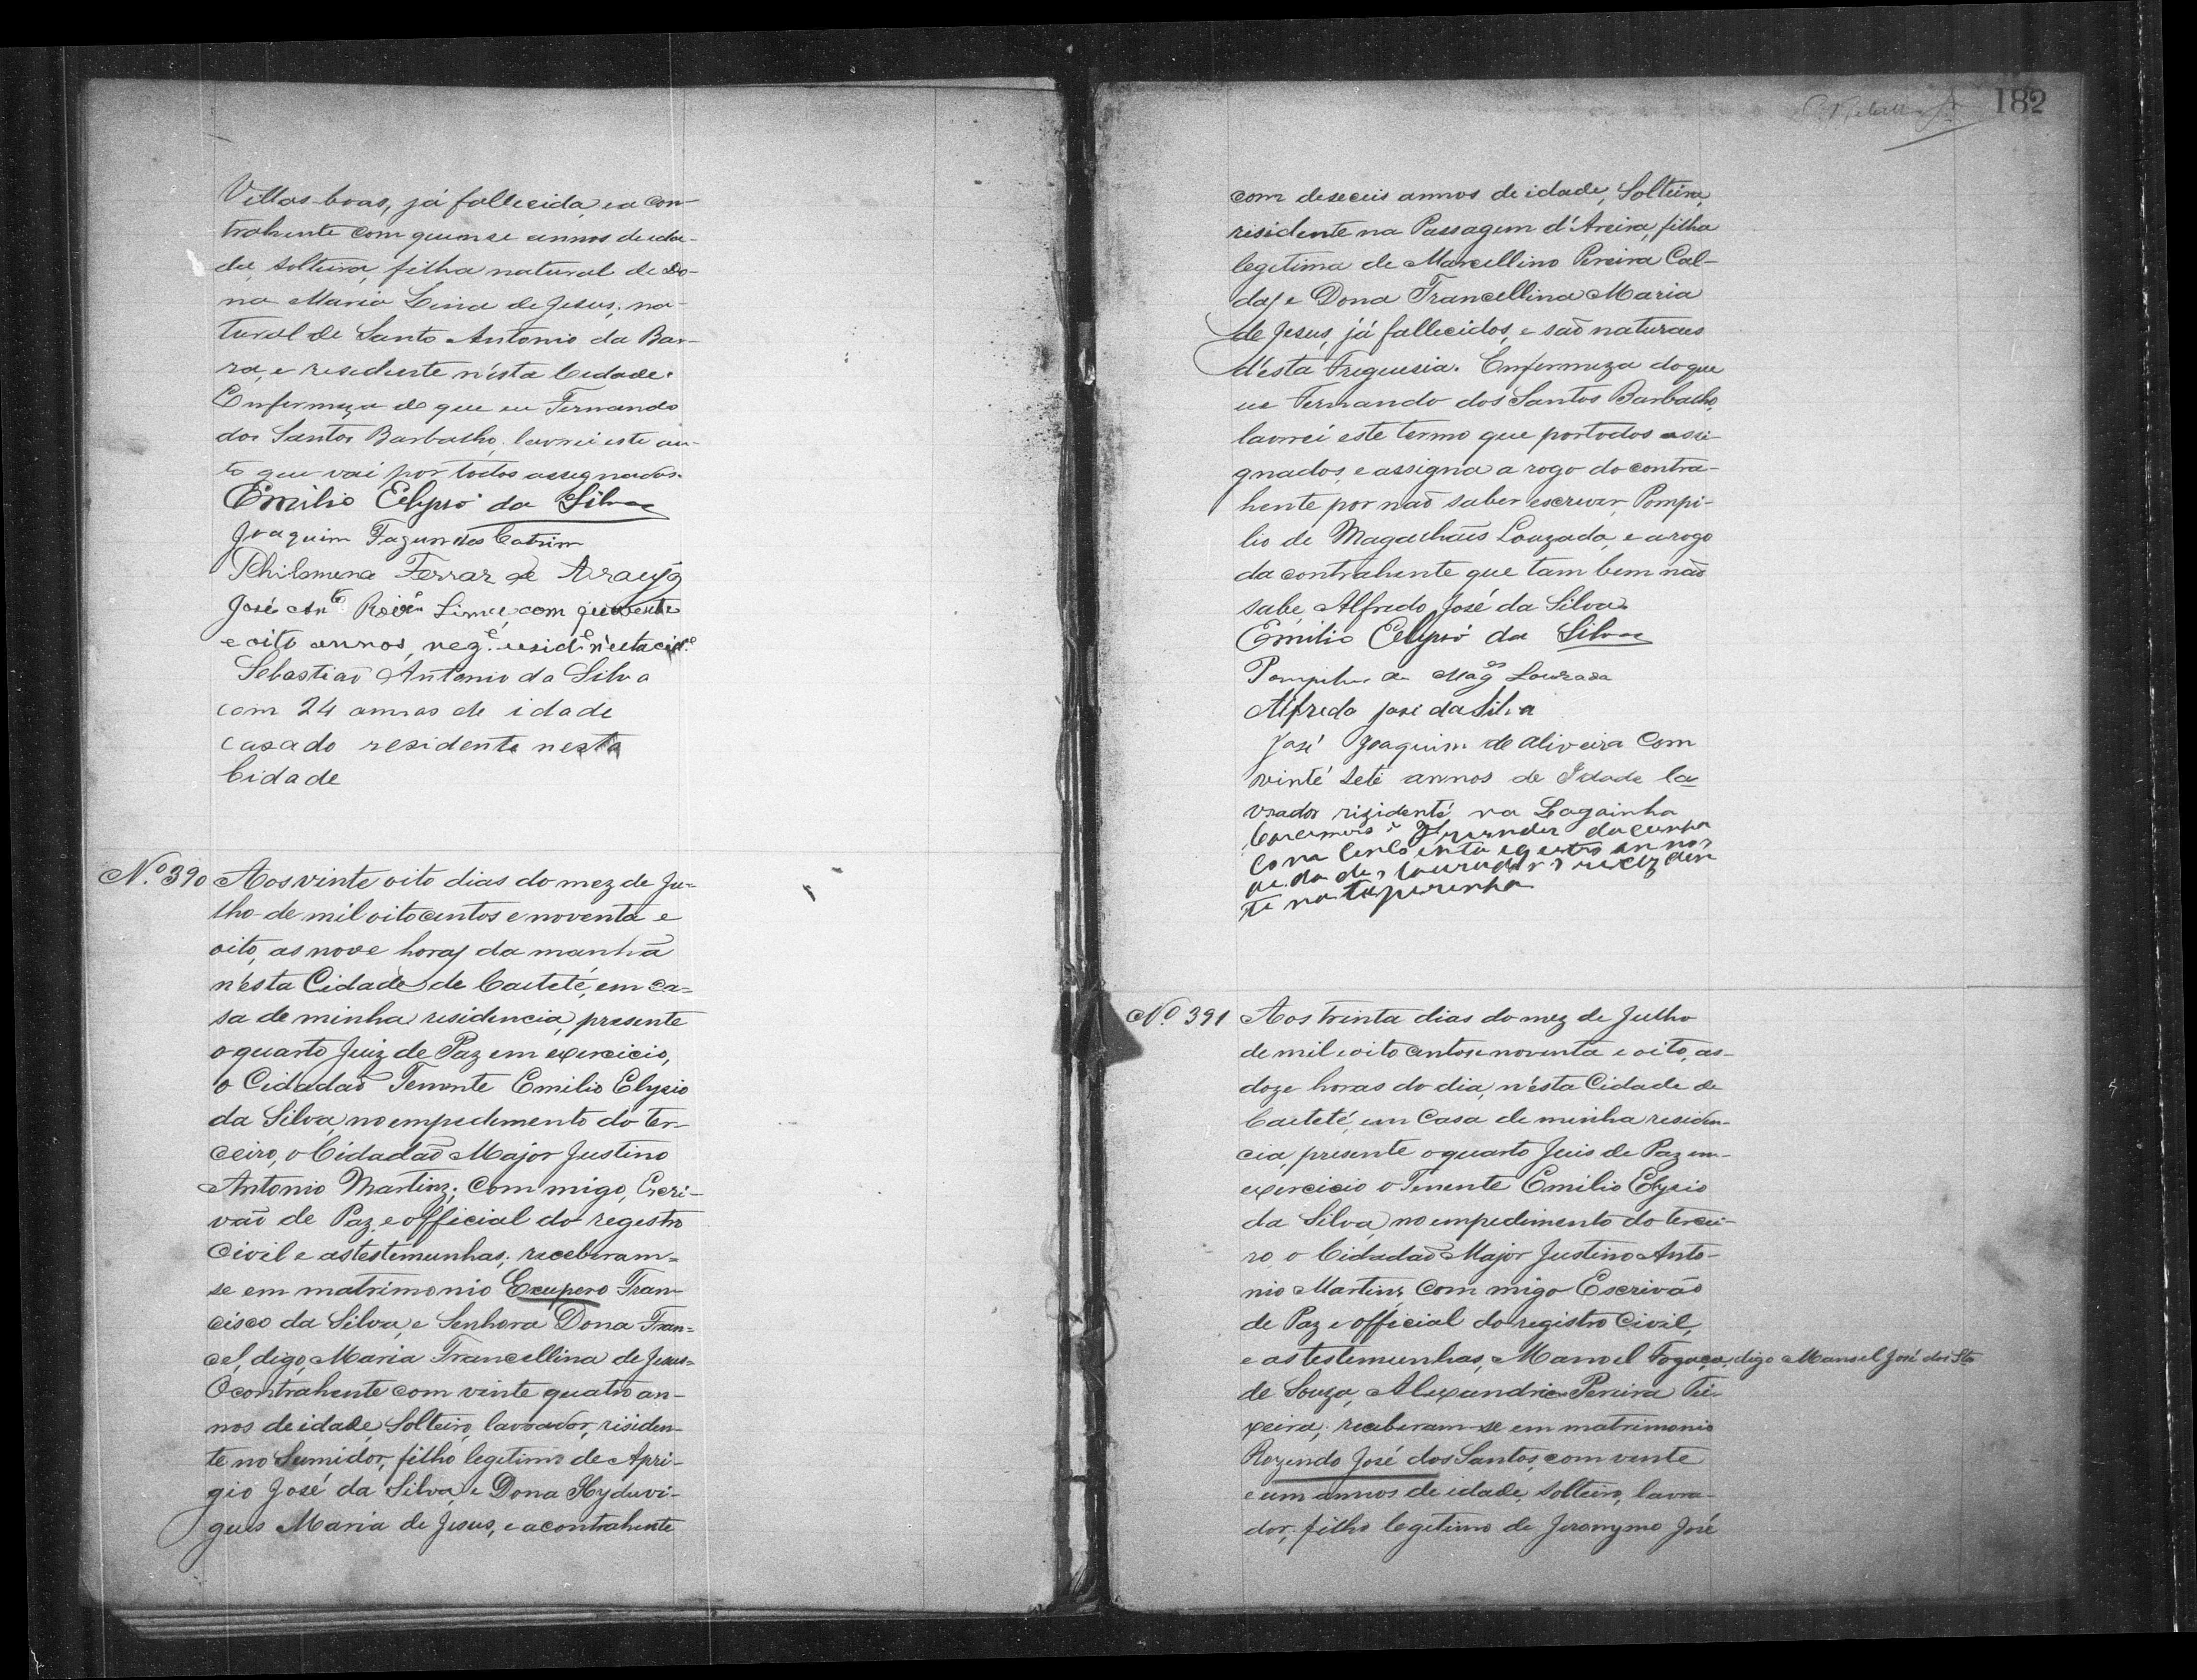 Villas-boas, já fallecida, e a con-
trahente com quinse annos de ida-
de, solteira, filha natural de Do-
na Maria Lina de Jesus, na-
tural de Santo Antonio da Bar-
ra, e residente n'ésta Cidade.
Emfermeza do que eu Fernando
dos Santos Barbalho, lavrei este au-
to que vai por todos assignados.
Emilio Elysio da Silva
Joaquim Fagundes Cotrim
Philomena Ferraz de Araujo
José Ant.º Lima, com quarenta
e oito annos, neg.e resid.e n'esta cid.e
Sebastião Antonio da Silva
com 24 annos de idade
casado residente nesta
Cidade
N.º 390 Aos vinte oito dias do mez de Ju-
lho de mil oitocentos e noventa e
oito, as nove horas da manhã
n'ésta Cidade de Caeteté, em ca-
sa de minha residencia, presente
o quarto Juiz de Paz em exercicio,
o Cidadão Tenente Emilio Elysio
da Silva, no empedimento do ter-
ceiro, o Cidadão Major Justino
Antonio Martins; com migo, Escri-
vão de Paz e official do registro
Civil e as testemunhas; receberam-
se em matrimonio Exupero Fran-
cisco da Silva, e Senhora Dona Fran-
cel, digo, Maria Francellina de Jesus-
O contrahente com vinte quatro an-
nos de idade, Solteiro, lavrador, residen-
te no Sumidor, filho legitimo de Apri-
gio José da Silva, e Dona Hyduvi-
ges Maria de Jesus, e a contrahente
182
com deseceis annos de idade, Solteira,
residente na Passagem d'Areira, filha
legitima de Marcellino Pereira Cal-
das e Dona Francellina Maria
de Jesus, já fallecidos, e são naturaes
d'ésta Freguesia. Emfermeza do que
eu Fernando dos Santos Barbalho,
lavrei este termo que por todos assi-
gnados, e assigna a rogo do contra-
hente por não saber escrever, Pompi-
lio de Magalhães Louzada, e a rogo
da contrahente que tam bem não
sabe, Alfredo José da Silva.
Emilio Elysio da Silva
Pompilio de Mag.es Louzada
Alfredo José da Silva
José Joaquim de Oliveira Com
vinté seté annos de Idade la
vrador rizidenté na Lagoinha
da Cunha
annos
N.º 391 Aos trinta dias do mez de Julho
de mil e oito centos e noventa e oito, as-
doze horas do dia, n'ésta Cidade de
Caeteté, em Casa de minha residen-
cia, presente o quarto Juis de Paz em-
exercicio o Tenente Emilio Elysio
da Silva, no empedimento do tercei-
ro, o Cidadão Major Justino Anto-
nio Martins, com migo Escrivão
de Paz e official do registro Civil,
e as testemunhas, Manoel Fogaça, digo Manoel José dos Stos
de Souza, Alexandre Pereira Tei-
xeira; receberam-se em matrimonio
Rozendo José dos Santos, com vente
e um annos de idade, solteiro, lavra-
dor, filho legitimo de Jeronymo José